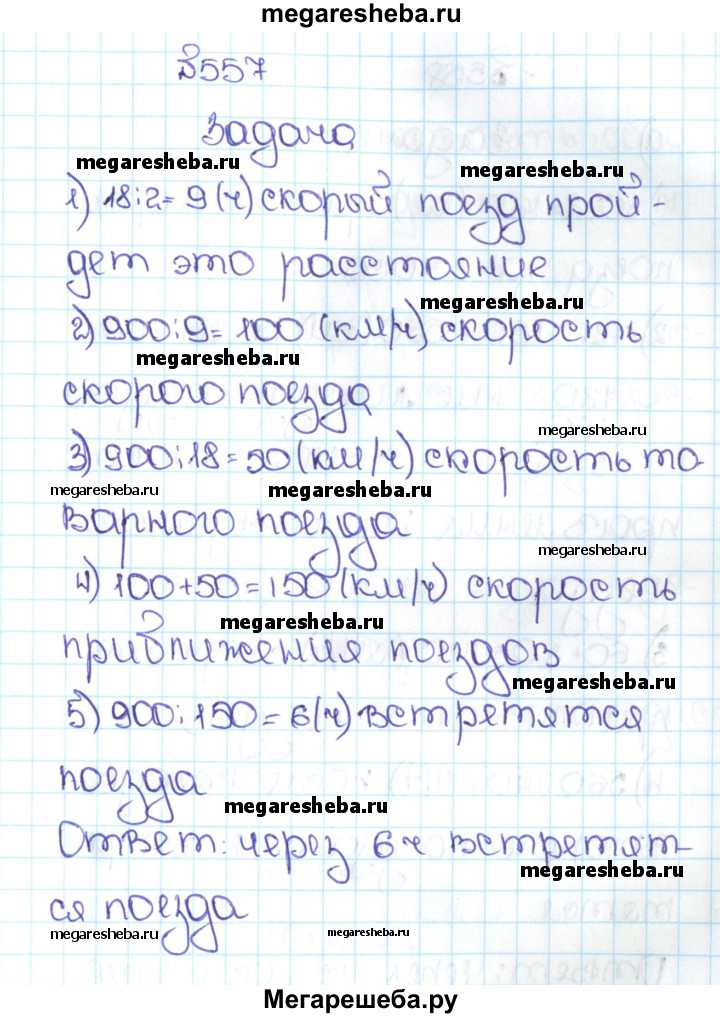 megaresheba.ru
№557
Задача
megaresheba.ru
megaresheba.ru
1) 18:2=9(ч) скорый поезд прой-
дет это расстояние
megaresheba.ru
2) 900:9=100 (км/ч) скорость
megaresheba.ru
скорого поезда
megaresheba.ru
3) 900:18=50(км/ч) скорость то
megaresheba.ru
megaresheba.ru
варного поезда
megaresheba.ru
4) 100+50=150(км/ч) скорость
megaresheba.ru
приближения поездов
megaresheba.ru
5) 900:150=6(ч) встретятся
поезда
megaresheba.ru
Ответ: через 6 ч встретят-
megaresheba.ru
ся поезда
megaresheba.ru
megaresheba.ru
Мегарешеба.ру